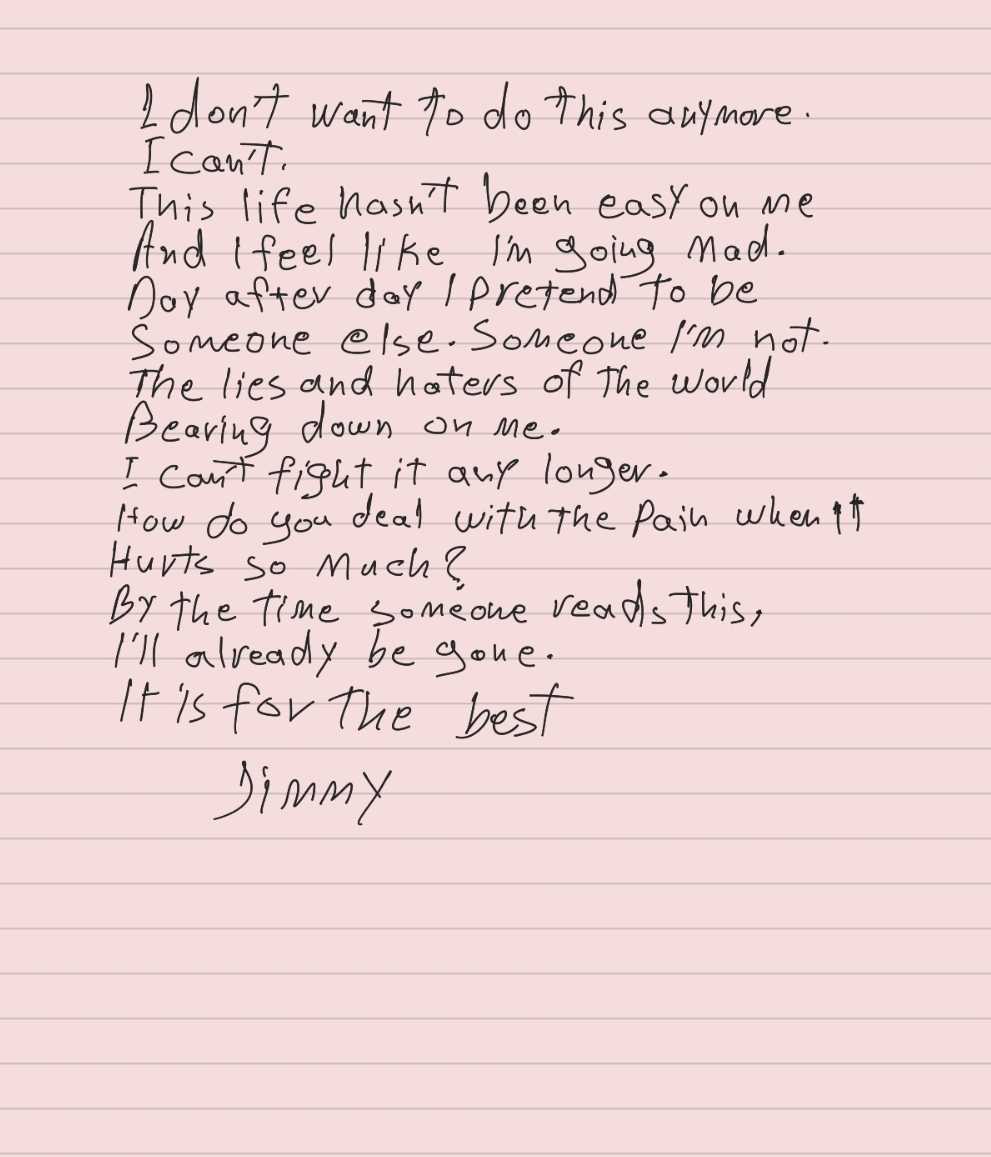 I don't want to do this anymore.
I can't.
This life hasn't been easy on me
And I feel like I'm going mad.
Day after day I pretend to be
Someone else. Someone I'm not.
The lies and haters of the world
Bearing down on me.
I can't fight it any longer.
How do you deal with the pain when it
Hurts so much?
By the time someone reads this,
I'll already be gone.
It is for the best
Jimmy